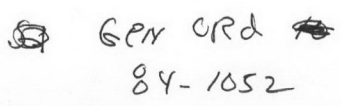 GEN ORd
84-1052